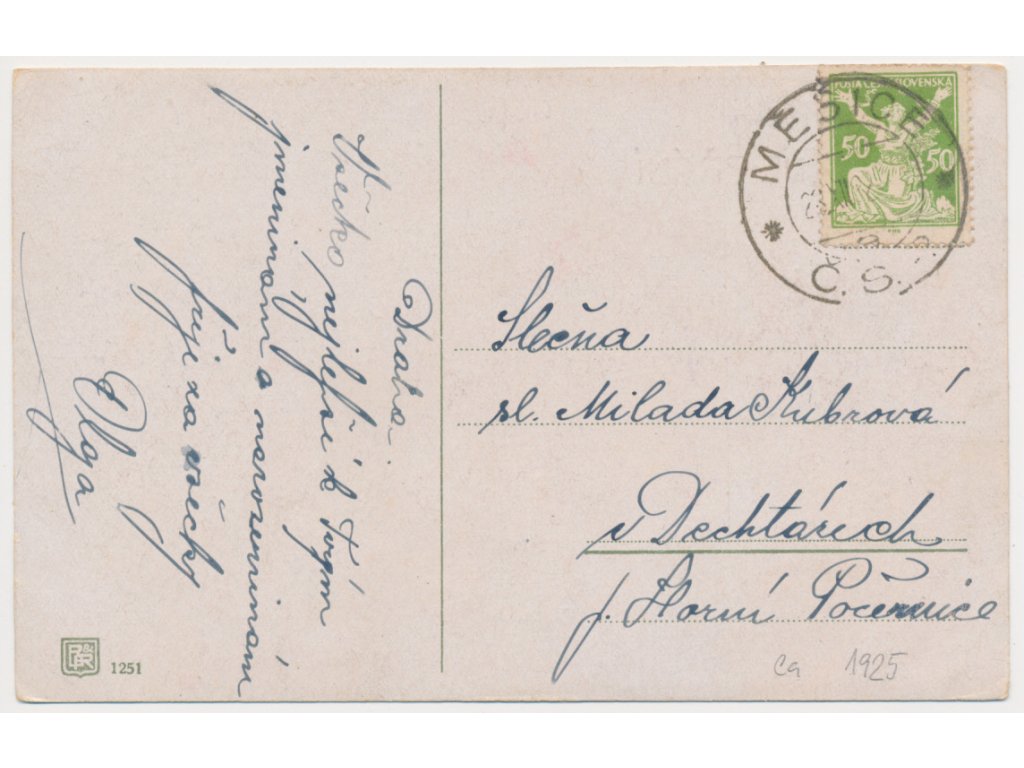 Drahá.
Všecko nejlepší k Tvým
jmeninám a narozeninám
přeji za všecky
Olga
POŠTA ČESKOSLOVENSKÁ
50 50
MĚŠICE
Č.S.
Slečna
sl. Milada Kubrová
v Dechtárech
p. Horní Počernice
ca 1925
1251